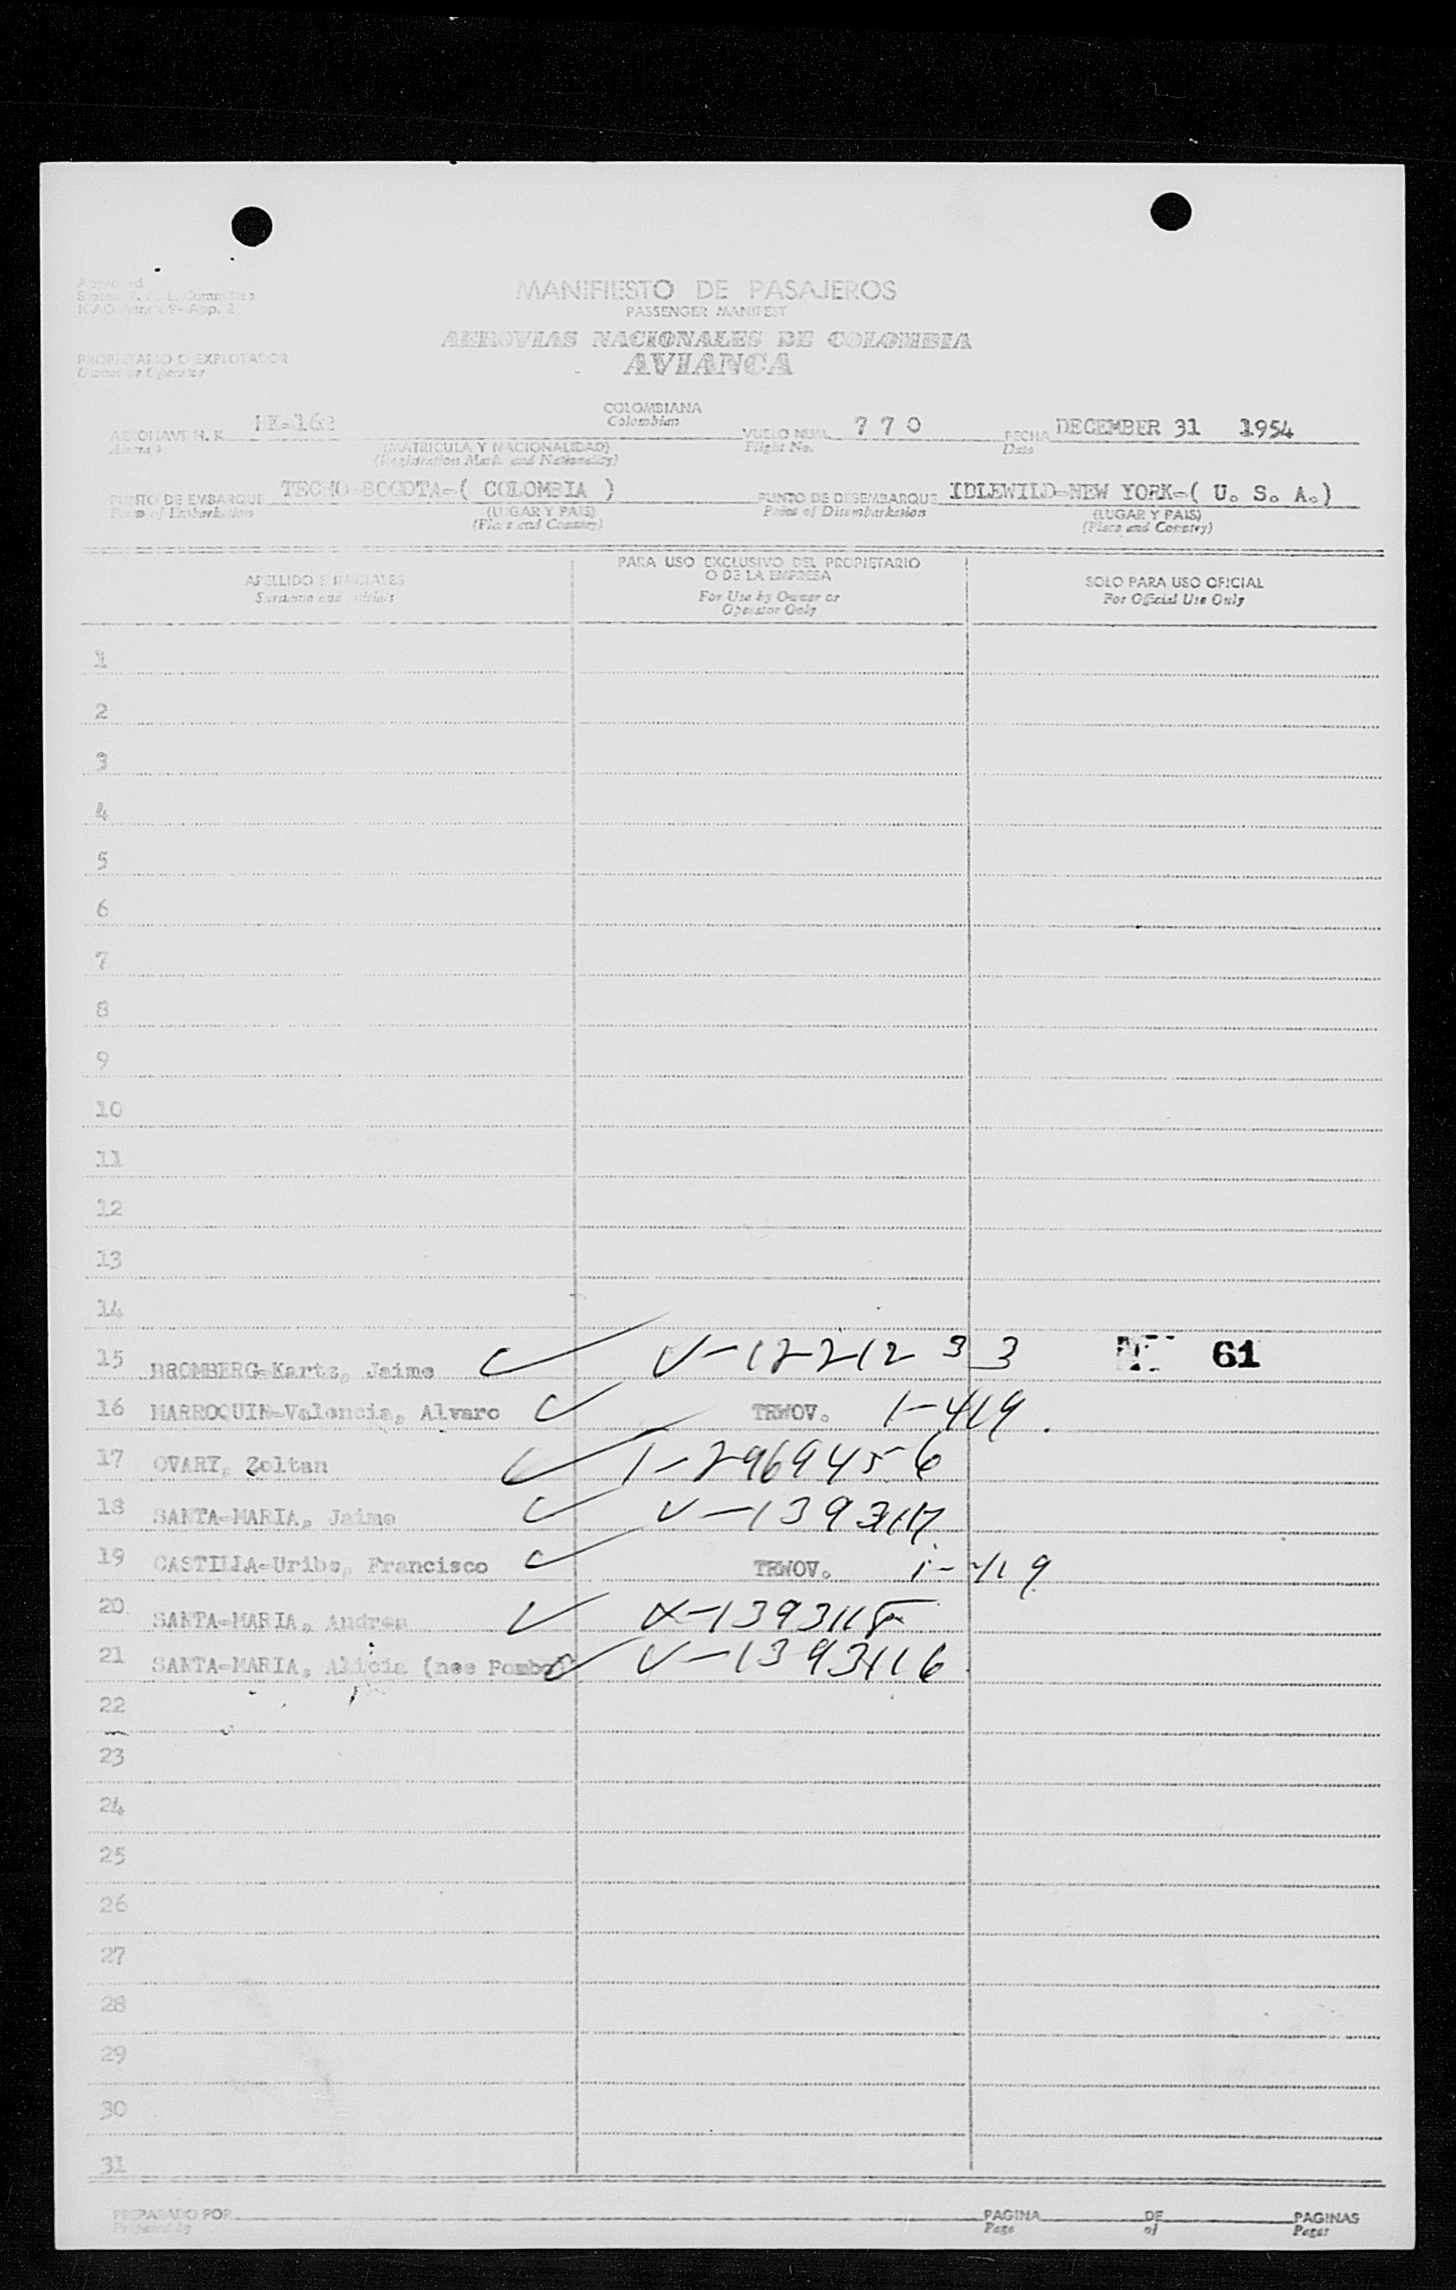 Approved
ICAO Annex 9-App. 2
MANIFIESTO DE PASAJEROS
PASSENGER MANIFEST
AEROVIAS NACIONALES DE COLOMBIA
AVIANCA
PROPIETARIO O EXPLOTADOR
Owner or Operator
AERONAVE H. K. HK-162 COLOMBIANA VUELO NUM. 770 FECHA DECEMBER 31 1954
Aircraft Colombian Flight No. Date
(MATRICULA Y NACIONALIDAD)
(Registration Mark and Nationality)
PUNTO DE EMBARQUE TECHO-BOGOTA-( COLOMBIA ) PUNTO DE DESEMBARQUE IDLEWILD-NEW YORK-( U. S. A.)
Point of Embarkation (LUGAR Y PAIS) Point of Disembarkation (LUGAR Y PAIS)
(Place and Country) (Place and Country)
APELLIDO E INICIALES PARA USO EXCLUSIVO DEL PROPIETARIO O DE LA EMPRESA SOLO PARA USO OFICIAL
Surname and Initials For Use by Owner or Operator Only For Official Use Only
1
2
3
4
5
6
7
8
9
10
11
12
13
14
15 BROMBERG-Kartz, Jaime ✓ V-1221233 61
16 MARROQUIN-Valencia, Alvaro ✓ TRWOV. 1-419.
17 OVARY, Zoltan ✓ 1-2969456
18 SANTA-MARIA, Jaime ✓ V-1393117
19 CASTILLA-Uribe, Francisco ✓ TRWOV. 1-419
20 SANTA-MARIA, Andres ✓ V-1393115
21 SANTA-MARIA, Alicia (nee Pombo) ✓ V-1393116
22
23
24
25
26
27
28
29
30
31
PREPARADO POR PAGINA DE PAGINAS
Prepared by Page of Pages